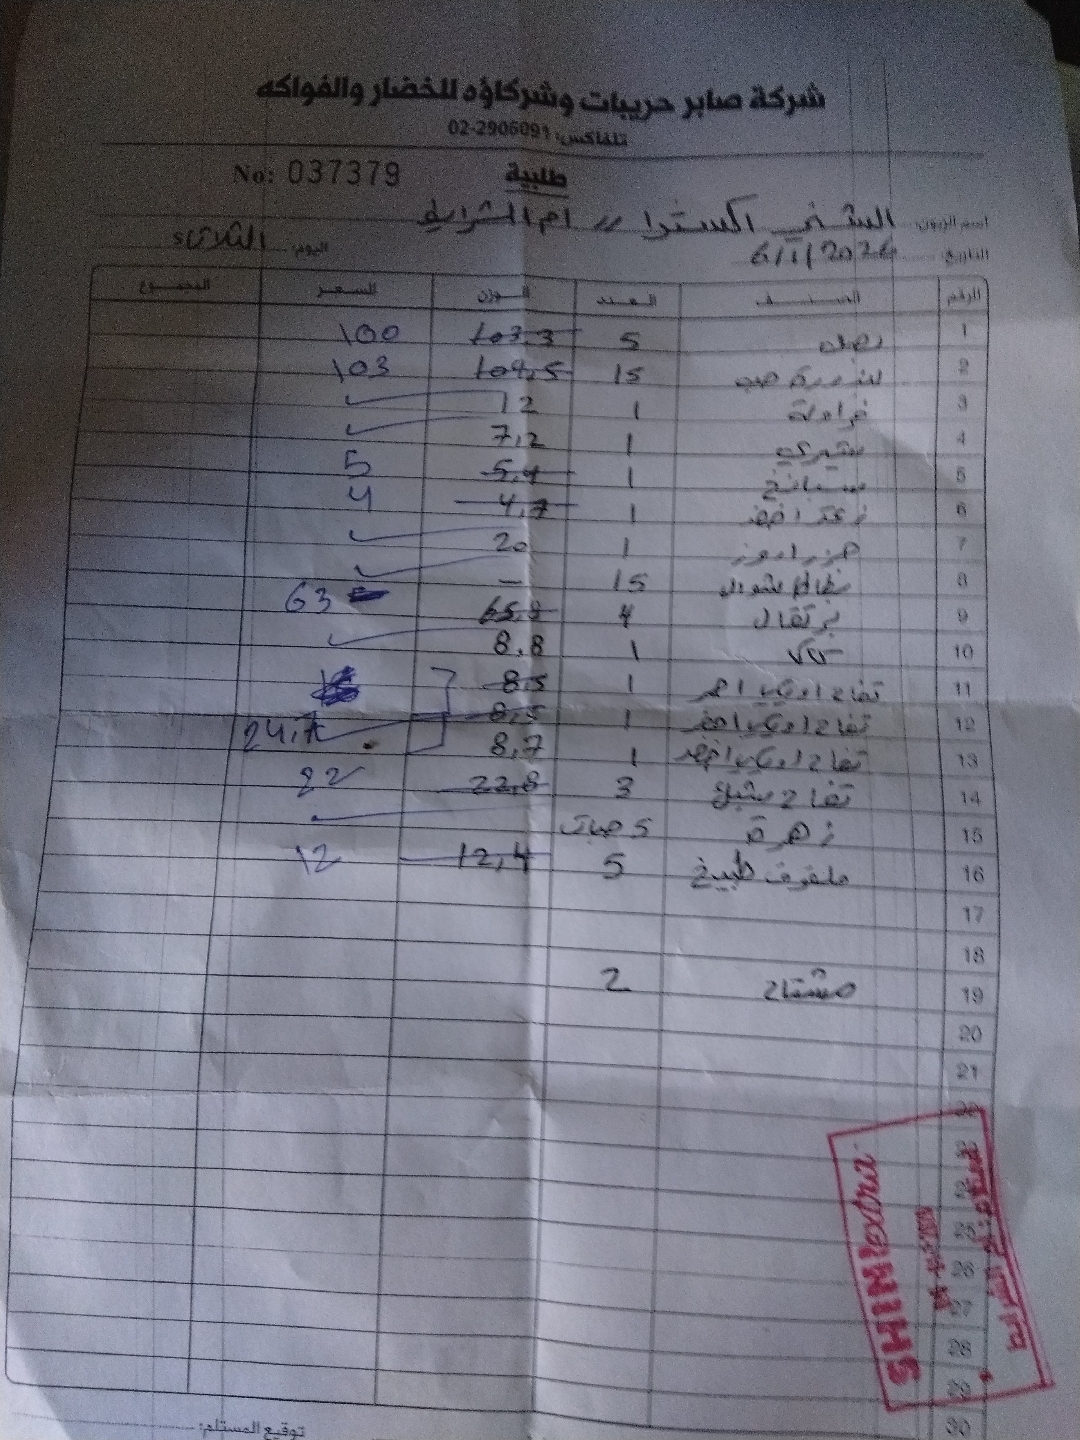 شركة صابر حريبات وشركاؤه للخضار والفواكه
تلفاكس: 02-2906091
طلبية No: 037379
اسم الزبون: الشني اكسترا // ام الشرايط
التاريخ: 6/1/2026 اليوم: الثلاثاء
الرقم الصنف العدد الوزن السعر المجموع
1 بصل 5 103.3 100
2 بندورة حب 15 109,5 103
3 فراولة 1 12
4 شيري 1 7,2
5 سبانخ 1 5,4 5
6 زعتر اخضر 1 4,7 4
7 جزر ابوز 1 20
8 بطاطا شوال 15 -
9 برتقال 4 65.8 63
10 1 8.8
11 تفاح امريكي احمر 1 8,5
12 تفاح امريكي اخضر 1 8,5 24,7
13 تفاح امريكي اخضر 1 8,7
14 تفاح 3 22,8 22
15 زهرة 5 حبات
16 ملفوف طبيخ 5 12,4 12
17
18
19 مشتاح 2
20
21
22
23
25
26
27
28
29
30
SHINI extra
توقيع المستلم: